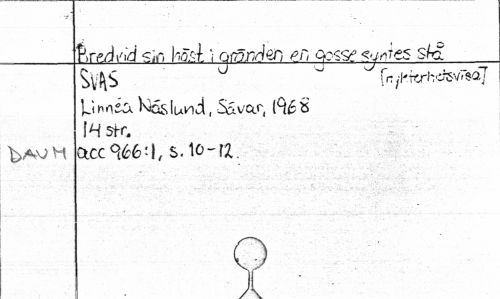 Bredvid sin häst i gränden en gosse syntes stå
[nykterhetsvisa]
SVAS
Linnéa Näslund, Sävar, 1968
14 str.
DAUM acc 966:1, s. 10-12.